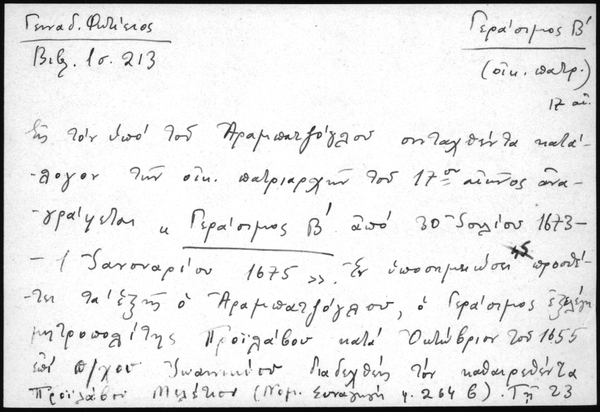 Γενναδ. Φωτίειος
Βιβλ. 1 σ. 213
Γεράσιμος Β΄
(οἰκ. πατρ.)
17 αἰ.
Εἰς τόν ὑπό τοῦ Ἀραμπατζόγλου συνταχθέντα κατά-
-λογον τῶν οἰκ. πατριαρχῶν τοῦ 17ου αἰῶνος ἀνα-
-γράφεται « Γεράσιμος Β΄ ἀπό 30 Ἰουλίου 1673-
- 1 Ἰανουαρίου 1675 ». Ἐν ὑποσημειώσει προσθέ-
τει τά ἑξῆς ὁ Ἀραμπατζόγλου, ὁ Γεράσιμος ἐξελέγη
μητροπολίτης Προϊλάβου κατά Ὀκτώβριον τοῦ 1655
ἐπί π/ρχου Ἰωαννικίου διαδεχθείς τόν καθαιρεθέντα
Προϊλάβου Μελέτιον (Νομ. Συναγωγή φ. 264 β). Τῇ 23